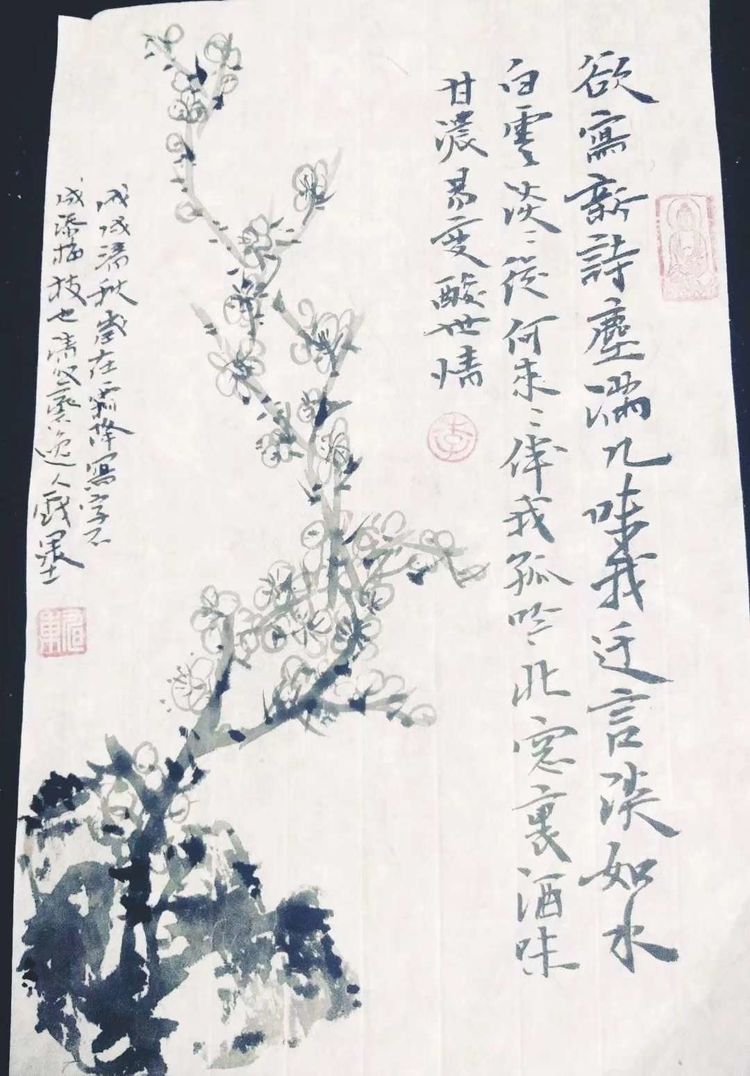 欲寫新詩塵滿几味我迂言淡如水
白雲淡〻從何来〻伴我孤吟北窓裏酒味
甘濃易變酸世情
李
戊戌清秋歲在霜降寫字不
成添梅枝也 逸人戲墨